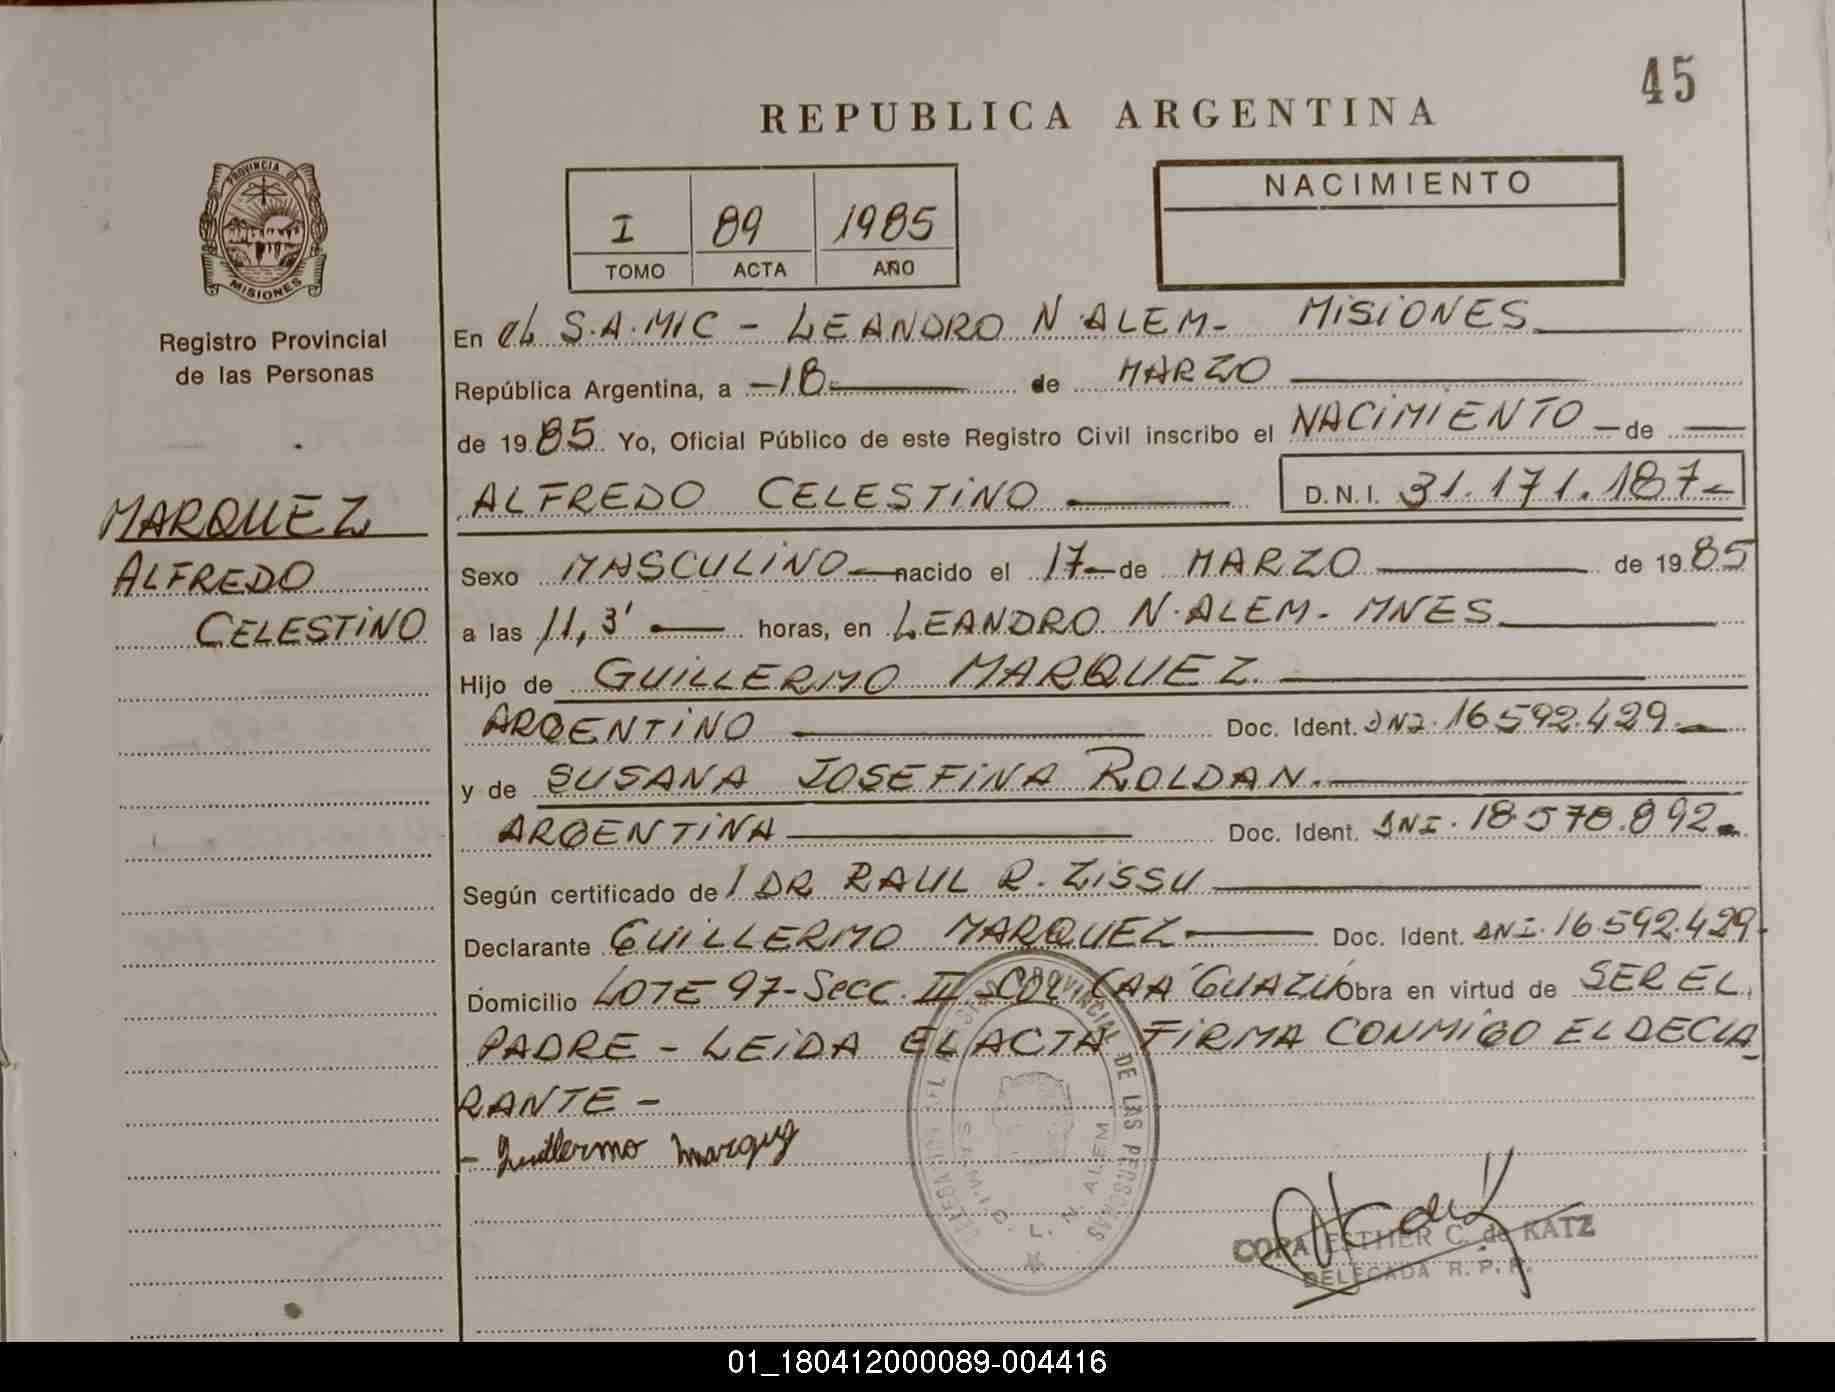 45
REPUBLICA ARGENTINA
PROVINCIA DE
MISIONES
Registro Provincial
de las Personas
I 89 1985
TOMO ACTA AÑO
NACIMIENTO
En el S.A.MIC - LEANDRO N. ALEM - MISIONES
República Argentina, a -18- de MARZO
de 1985 Yo, Oficial Público de este Registro Civil inscribo el NACIMIENTO - de
ALFREDO CELESTINO D.N.I. 31.171.187-
MARQUEZ
ALFREDO
CELESTINO
Sexo MASCULINO - nacido el 17 - de MARZO de 1985
a las 11,3' horas, en LEANDRO N. ALEM - MNES
Hijo de GUILLERMO MARQUEZ
ARGENTINO Doc. Ident. DNI. 16.592.429.-
y de SUSANA JOSEFINA ROLDAN.
ARGENTINA Doc. Ident. DNI. 18.570.892-
Según certificado de DR RAUL R. ZISSU
Declarante GUILLERMO MARQUEZ Doc. Ident. DNI. 16.592.429.
Domicilio LOTE 97 - Secc. III COL. CAA GUAZU Obra en virtud de SER EL
PADRE - LEIDA EL ACTA FIRMA CONMIGO EL DECLA
RANTE -
- Guillermo Marquez
PROVINCIAL DE LAS PERSONAS
L. N. ALEM
ESTHER C. de KATZ
DELEGADA R. P. P.
01_180412000089-004416